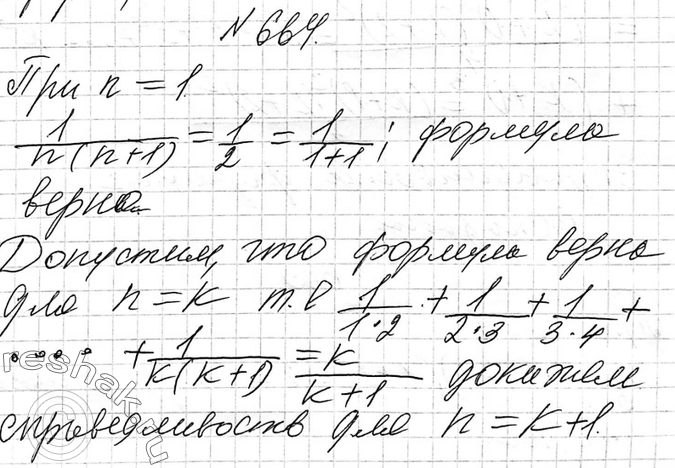 N 664.
При n = 1
1/(n(n+1)) = 1/2 = 1/(1+1); формула
верна
Допустим, что формула верна
для n = k т.е 1/(1·2) + 1/(2·3) + 1/(3·4) +
.... + 1/(k(k+1)) = k/(k+1) докажем
справедливость для n = k+1.
reshak.ru